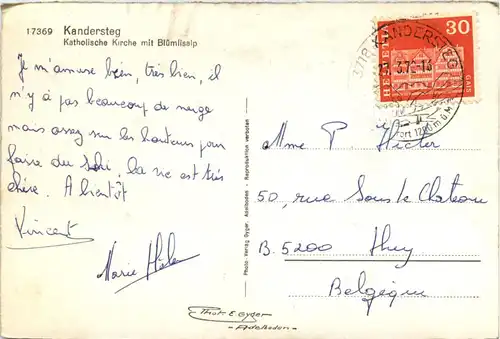 17369 Kandersteg
Katholische Kirche mit Blümlisalp
Je m'amuse bien, très bien, il
n'y a pas beaucoup de neige
mais assez sur les hauteurs pour
faire du ski, la vie est très
chère. A bientôt
Vincent
Marie
Photo-Verlag Gyger, Adelboden - Reproduktion verboten
Phot. E. Gyger
- Adelboden -
HELVETIA
30
GAIS
3718 KANDERSTEG
1200 m ü. M.
Mme P. Hicter
50, rue Sous le Chateau
B. 5200 Huy
Belgique